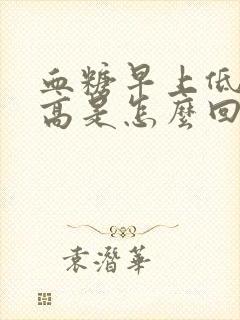 血糖早上低
高是怎麼回
袁潛華